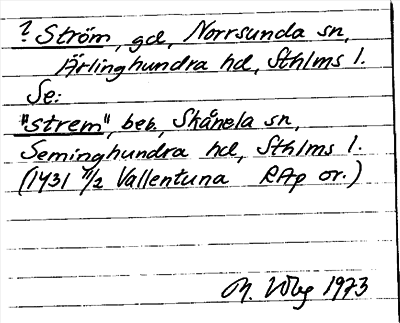 ? Ström, gd, Norrsunda sn,
Ärlinghundra hd, Sthlms l.
Se:
"strem", beb, Skånela sn,
Seminghundra hd, Sthlms l.
(1431 11/2 Vallentuna RAp or.)
1973